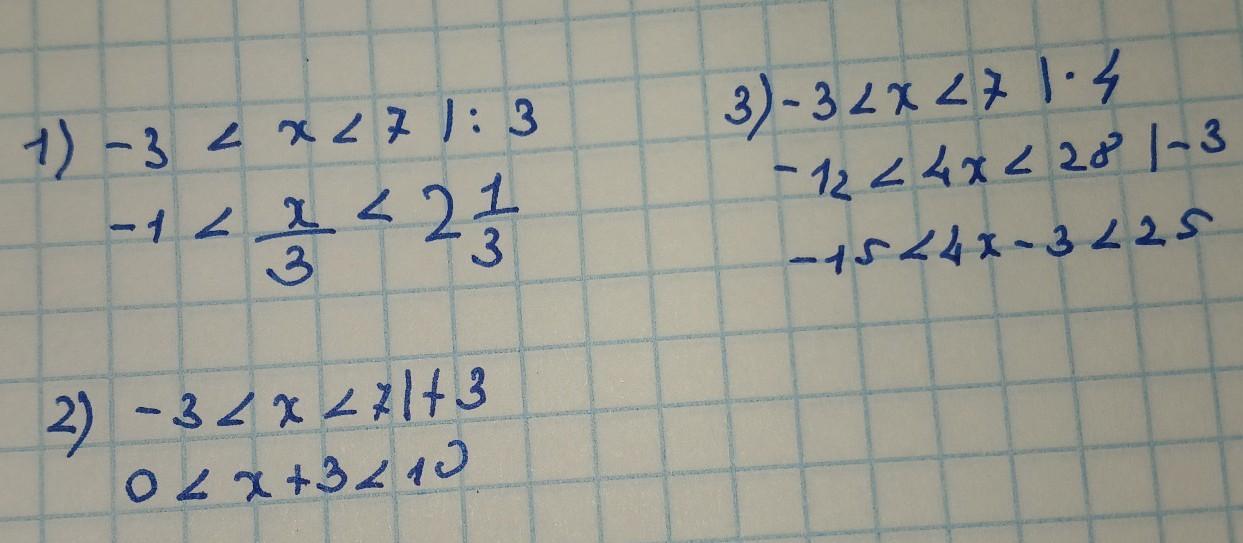 1) -3 < x < 7 |: 3
-1 < x/3 < 2 1/3
2) -3 < x < 7 |+3
0 < x+3 < 10
3) -3 < x < 7 | · 4
-12 < 4x < 28 |-3
-15 < 4x - 3 < 25